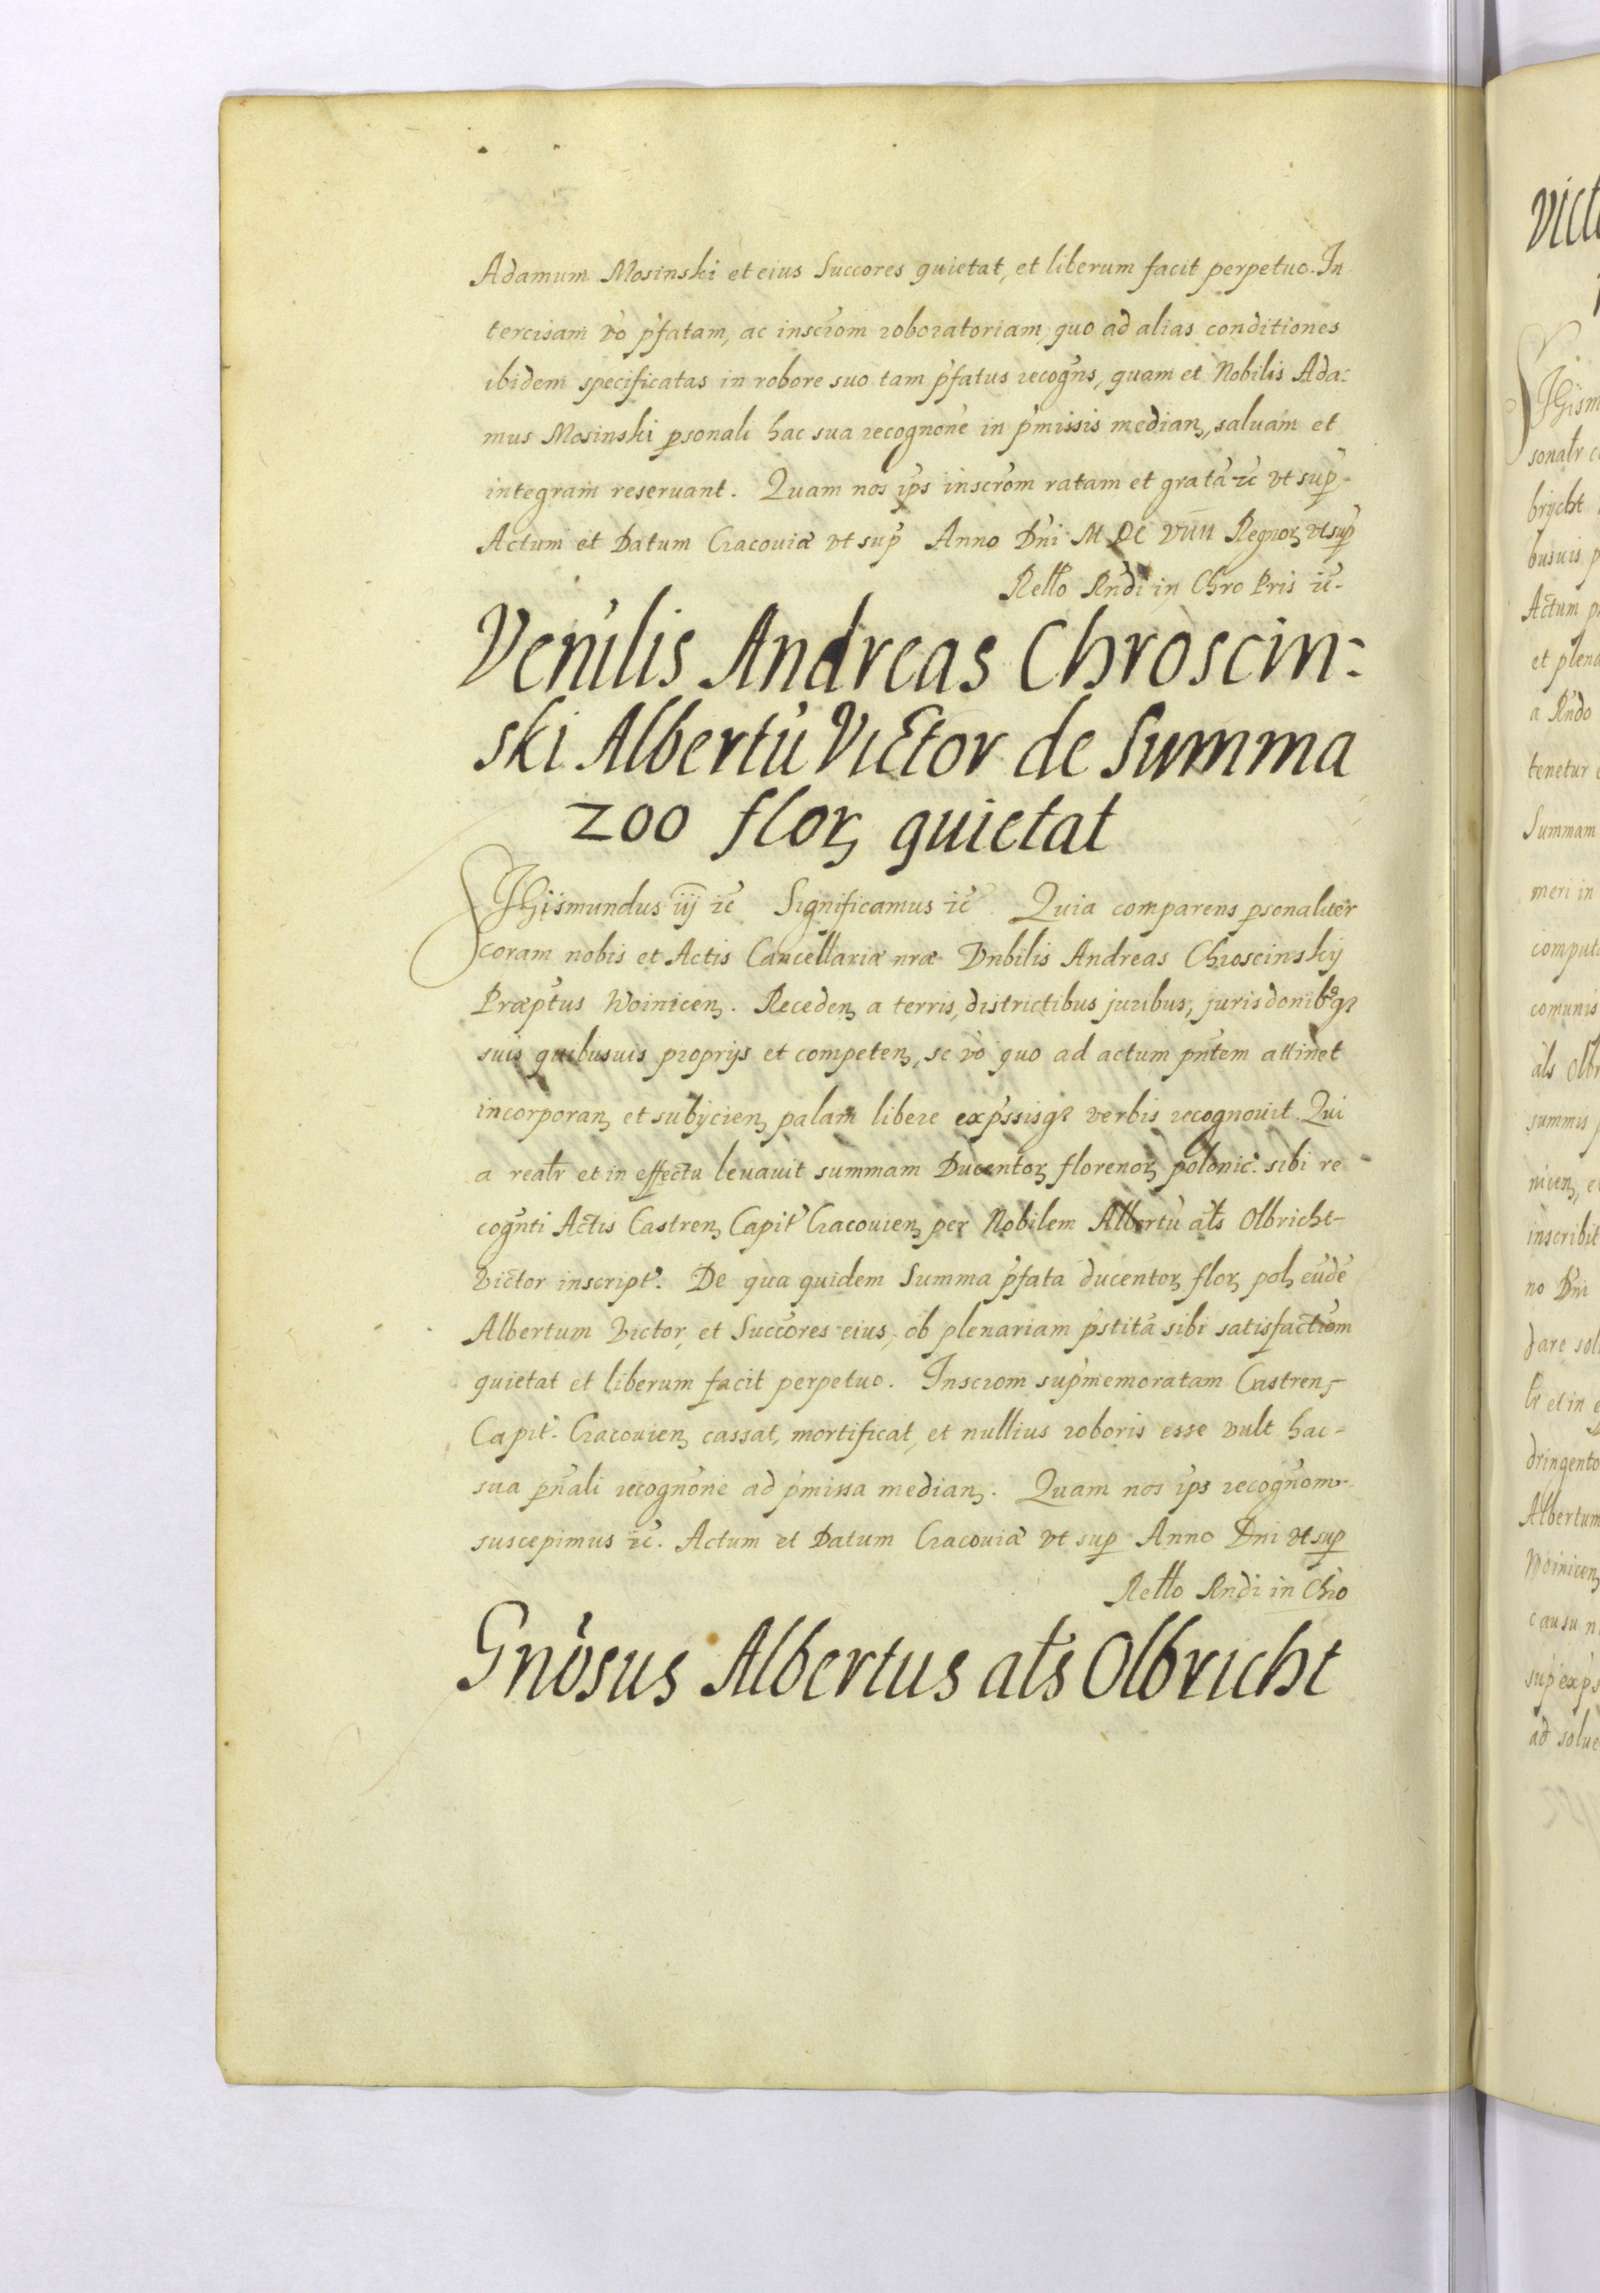 Adamum Mosinski et eius Succores quietat, et liberum facit perpetuo. In
tercisam vo pfatam, ac inscrom roboratoriam, quo ad alias conditiones
ibidem specificatas in robore suo tam pfatus recogns, quam et Nobilis Ada:
mus Mosinski psonali hac sua recognone in pmissis median, saluam et
integram reseruant. Quam nos ips inscrom ratam et grata ić vt sup
Actum et Datum Cracouiæ vt sup Anno Dni M DC VIIII Regnoꝝ vt sup
Rello Rndi in Chro Pris ić
Venilis Andreas Chroscin:
ski Albertu Victor de Summa
200 floꝝ quietat
SIGismundus iij ić Significamus ić Quia comparens psonaliter
coram nobis et Actis Cancellariæ nræ Vnbilis Andreas Chroscinskij
Præptus Woinicen. Receden a terris, districtibus juribus, jurisdonibqꝫ
suis quibusuis proprijs et competen, se vo quo ad actum pntem attinet
incorporan et subijcien palam libere expssisqꝫ verbis recognouit. Qui
a realr et in effectu leuauit summam Ducentoꝝ florenoꝝ polonic. sibi re
cognti Actis Castren Capit Cracouien per Nobilem Albertu als Olbricht
Victor inscript. De qua quidem Summa pfata ducentoꝝ floꝝ pol eude
Albertum Victor, et Succores eius, ob plenariam pstita sibi satisfactiom
quietat et liberum facit perpetuo. Inscrom supmemoratam Castren
Capit. Cracouien cassat, mortificat, et nullius roboris esse vult hac
sua pnali recognone ad pmissa median. Quam nos ips recognom
suscepimus ić. Actum et Datum Cracouiæ vt sup Anno Dni vt sup
Rello Rndi in Chro
Gnosus Albertus als Olbricht